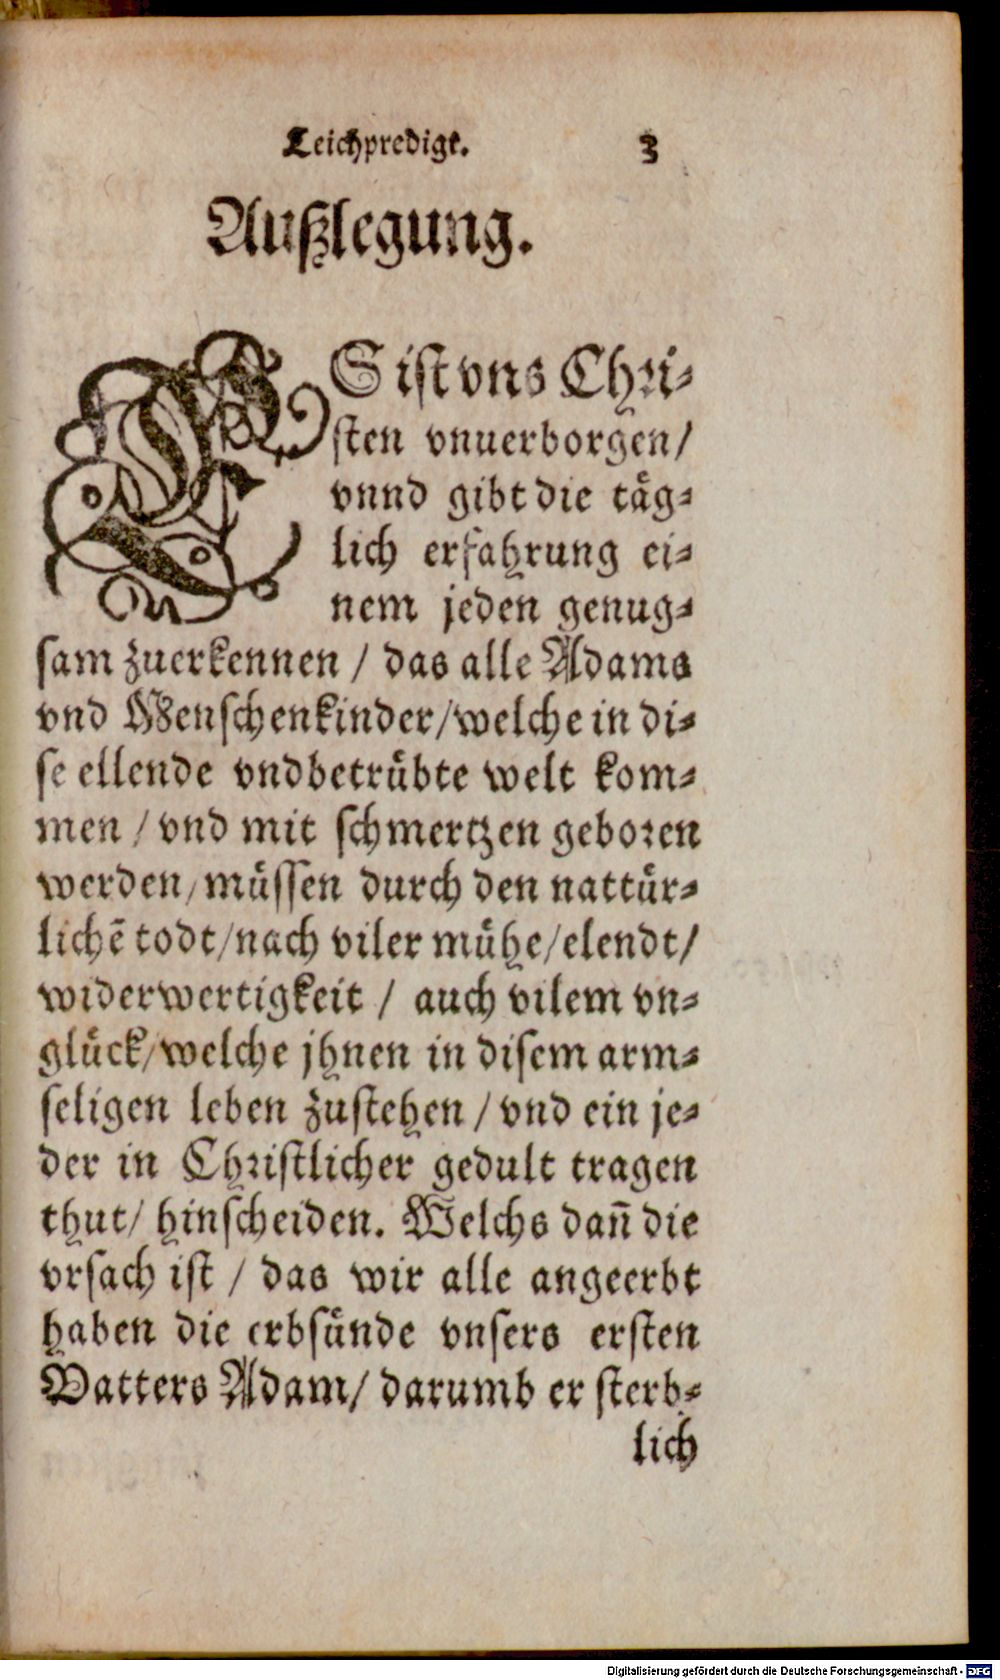 Leichpredigt. 3
Außlegung.
ES ist vns Chri⸗
sten vnuerborgen/
vnnd gibt die täg⸗
lich erfahrung ei⸗
nem jeden genug⸗
sam zuerkennen / das alle Adams
vnd Menschenkinder/welche in di⸗
se ellende vndbetrübte welt kom⸗
men / vnd mit schmertzen geboren
werden/müssen durch den nattür⸗
lichē todt/nach viler mühe/elendt/
widerwertigkeit / auch vilem vn⸗
glück/welche jhnen in disem arm⸗
seligen leben zustehen / vnd ein je⸗
der in Christlicher gedult tragen
thut/ hinscheiden. Welchs dañ die
vrsach ist / das wir alle angeerbt
haben die erbsünde vnsers ersten
Vatters Adam/ darumb er sterb⸗
lich
Digitalisierung gefördert durch die Deutsche Forschungsgemeinschaft - DFG